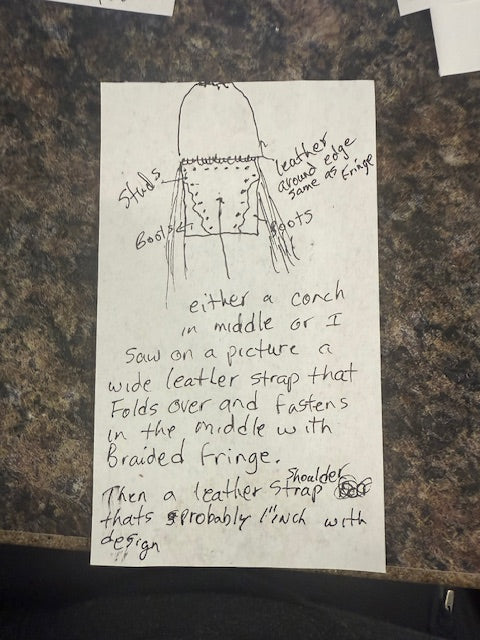 Studs
Leather
around edge
same as Fringe
Boots
Boots
either a conch
in middle or I
saw on a picture a
wide leatler strap that
Folds over and fastens
in the middle with
Braided Fringe.
Then a leather Shoulder strap
thats probably 1"inch with
design